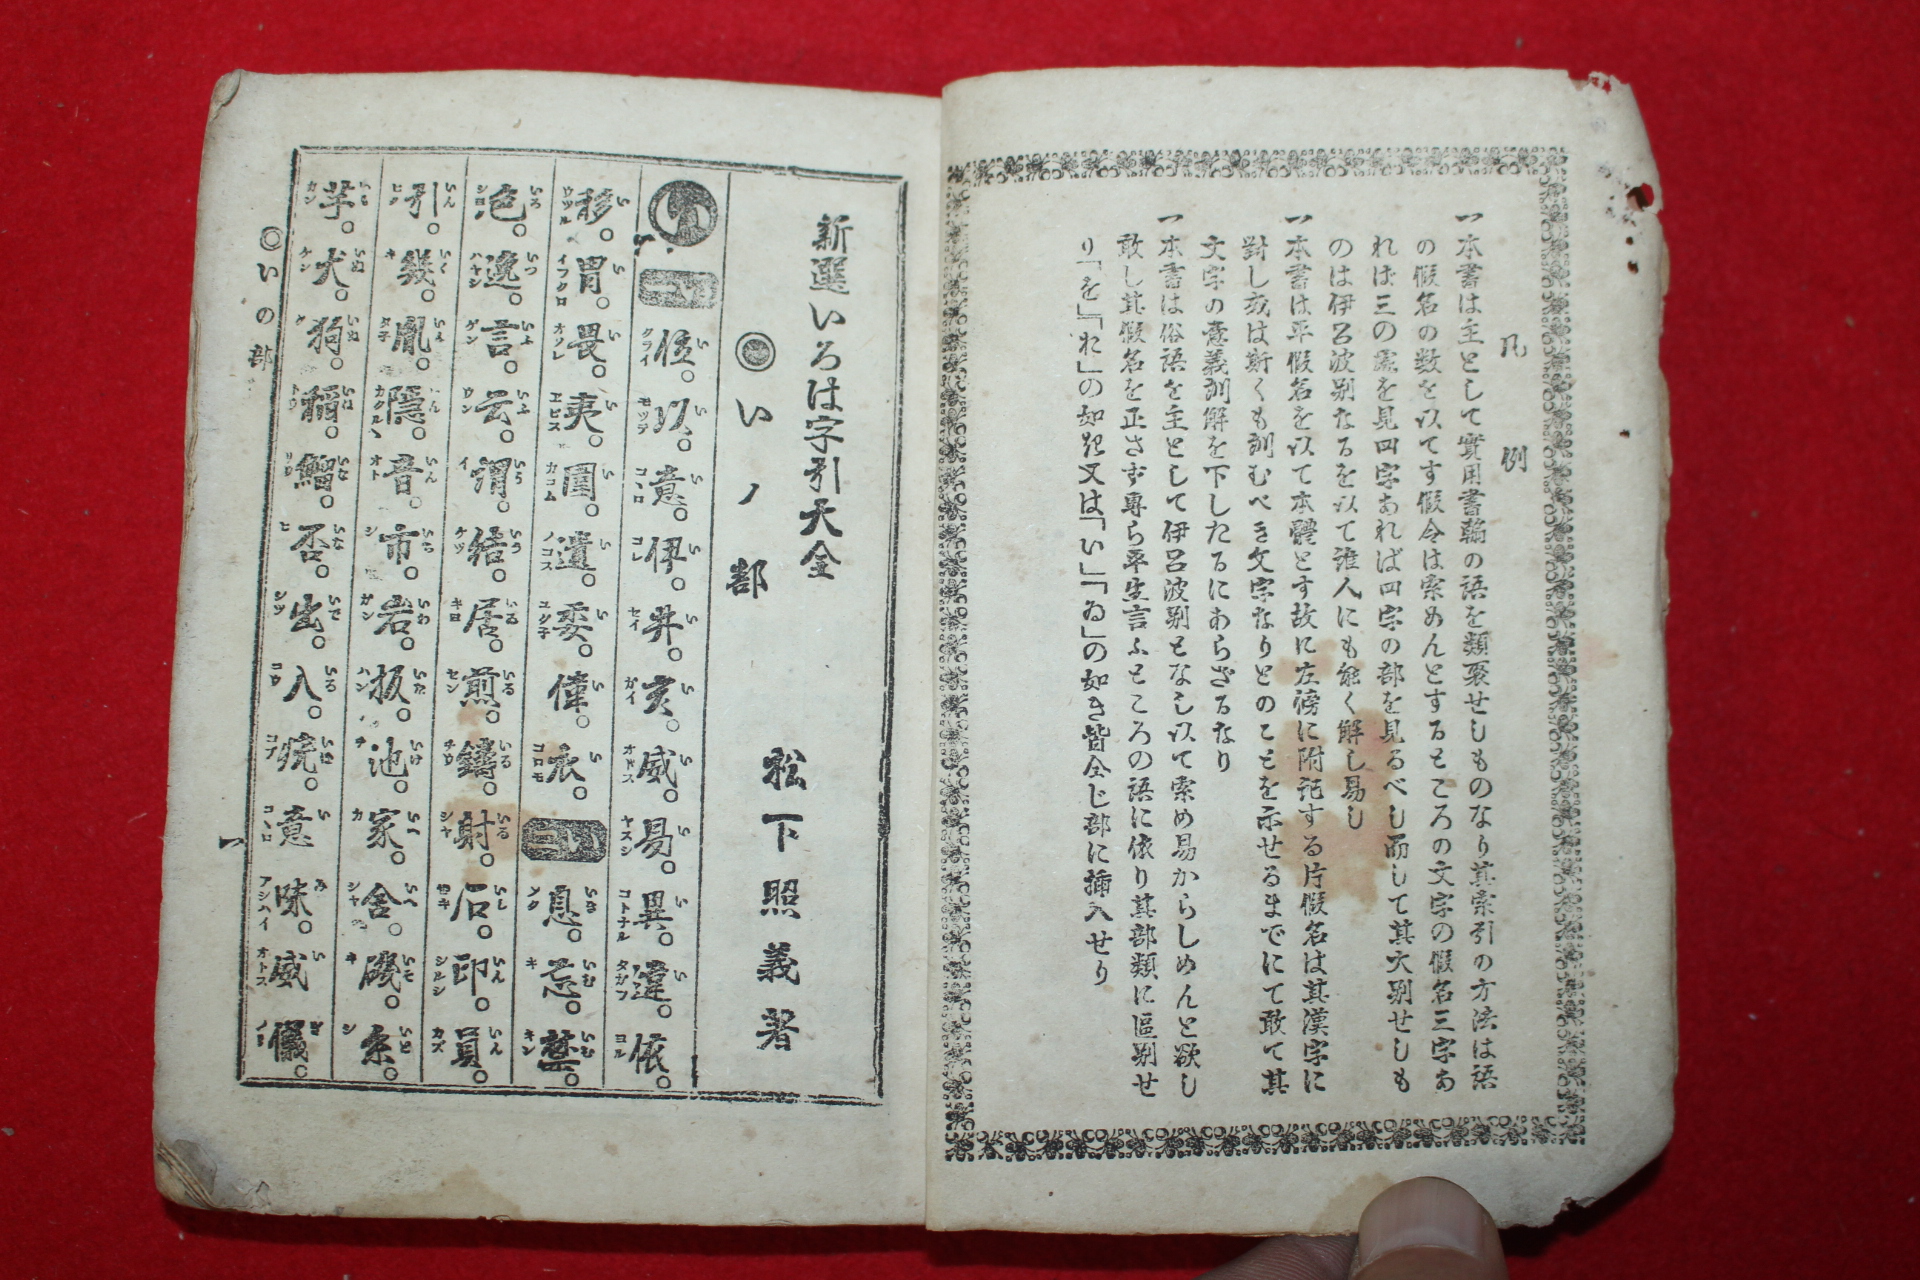 凡例
一本書は主として實用書翰の語を類聚せしものなり其索引の方法は語
の假名の数を以てす假令は索めんとするところの文字の假名三字あ
れは三の處を見四字あれば四字の部を見るべし而して其大別せしも
のは伊呂波別なるを以て誰人にも能く解し易し
一本書は平假名を以て本體とす故に左傍に附記する片假名は其漢字に
對し或は斯くも訓むべき文字なりとのことを示せるまでにて敢て其
文字の意義訓解を下したるにあらざるなり
一本書は俗語を主として伊呂波別となし以て索め易からしめんと欲し
敢し其假名を正さず專ら平生言ふところの語に依り其部類に區別せ
り「を」「お」の如又は「い」「ゐ」の如き皆全じ部に挿入せり
新選いろは字引大全
松下照義著
◎いノ部
位。以。意。伊。井。亥。威。易。異。違。依。
移。胃。畏。夷。圍。遺。委。偉。衣。二い息。忌。禁。
色。逸。言。云。謂。結。居。煎。鑄。射。石。印。員。
引。幾。胤。隠。音。市。岩。扱。池。家。舎。磯。糸。
芋。犬。狗。稲。鰡。否。出。入。疣。意味。威儀。
◎いの部
一